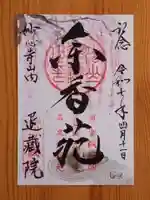 記念 令和七年四月十一日
余香苑
妙心寺山内
退藏院